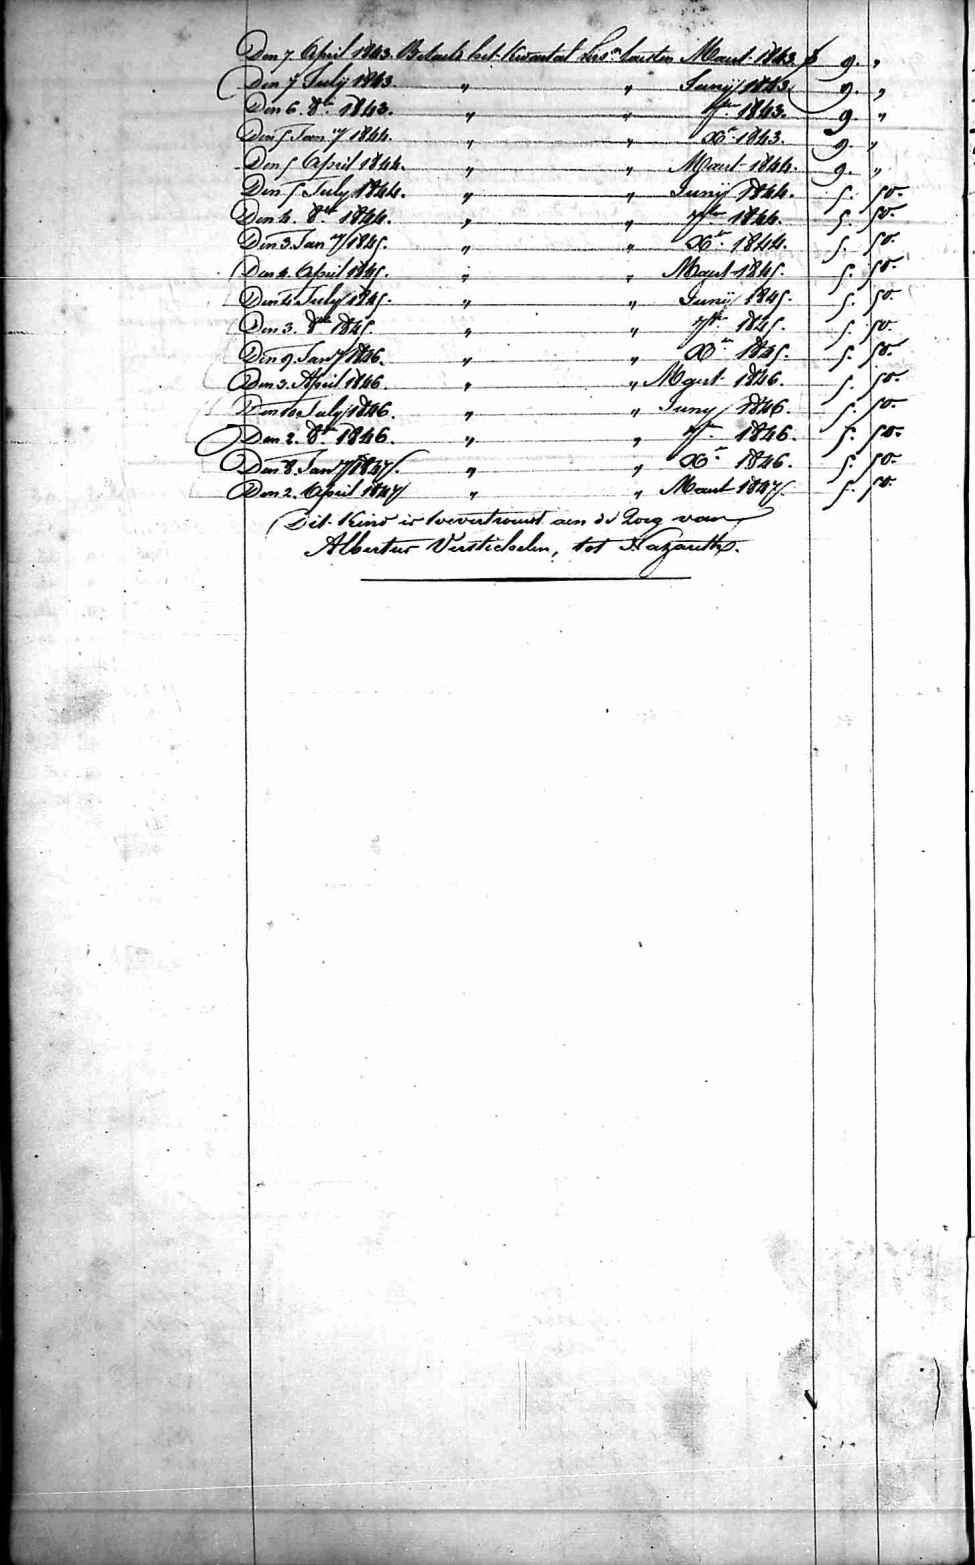 Den 7 April 1843. Betaelt het Kwartael lest laetsten Maart 1843 f 9. "
Den 7 July 1843. " " Junij 1843 9. "
Den 6. 8br 1843. " " 7br 1843. 9. "
Den 5 Jan 7 1844. " " Xr 1843. 9. "
Den 5 April 1844. " " Maart 1844. 9. "
Den 5 July 1844. " " Junij 1844. 5. 50.
Den 4. 8br 1844. " " 7br 1844. 5. 50.
Den 3. Jan 7 1845. " " Xbr 1844. 5. 50.
Den 4. April 1845. " " Maert 1845. 5. 50.
Den 4 July 1845. " " Junij 1845. 5. 50.
Den 3. 8br 1845. " " 7br 1845. 5. 50.
Den 9. Jan 7 1846. " " Xbr 1845. 5. 50.
Den 3. April 1846 " " Maert 1846. 5. 50.
Den 10 July 1846. " " Juny 1846. 5. 50.
Den 2. 8br 1846. " " 7br 1846. 5. 50.
Den 8. Jan 7 1847. " " Xr 1846. 5. 50.
Den 2. April 1847 " " Maert 1847. 5. 50.
Dit Kind is toevertrouwt aen de Zorg van
Albertus Verstichelen, tot Nazareth.